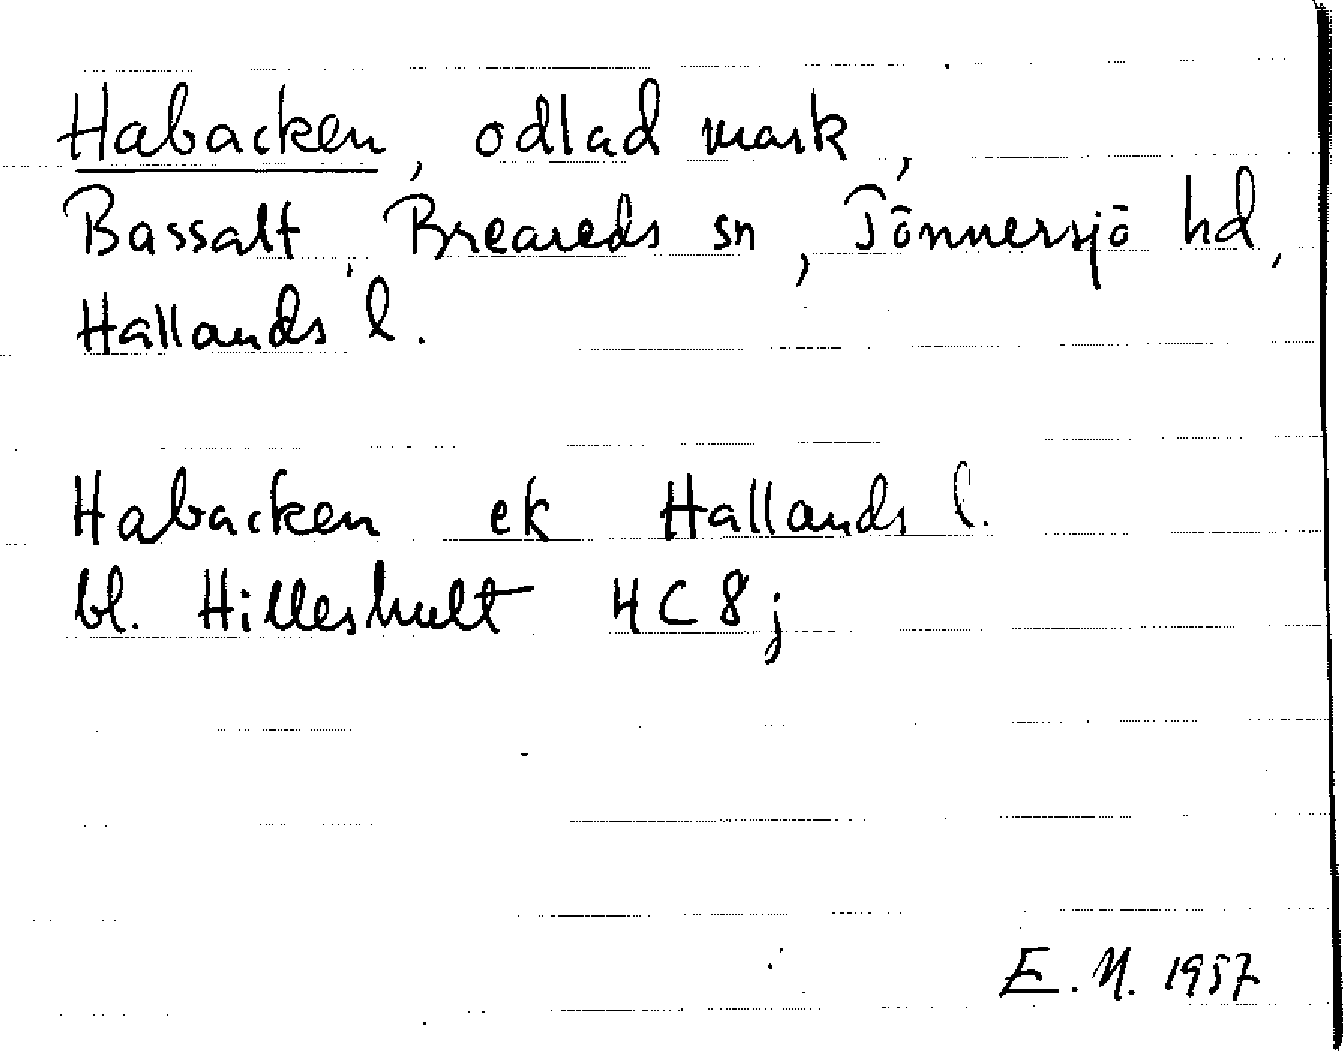 Habacken, odlad mark,
Bassalt, Breareds sn, Tönnersjö hd,
Hallands l.
Habacken ek Hallands l.
bl. Hilleshult 4C 8j
E. N. 1957